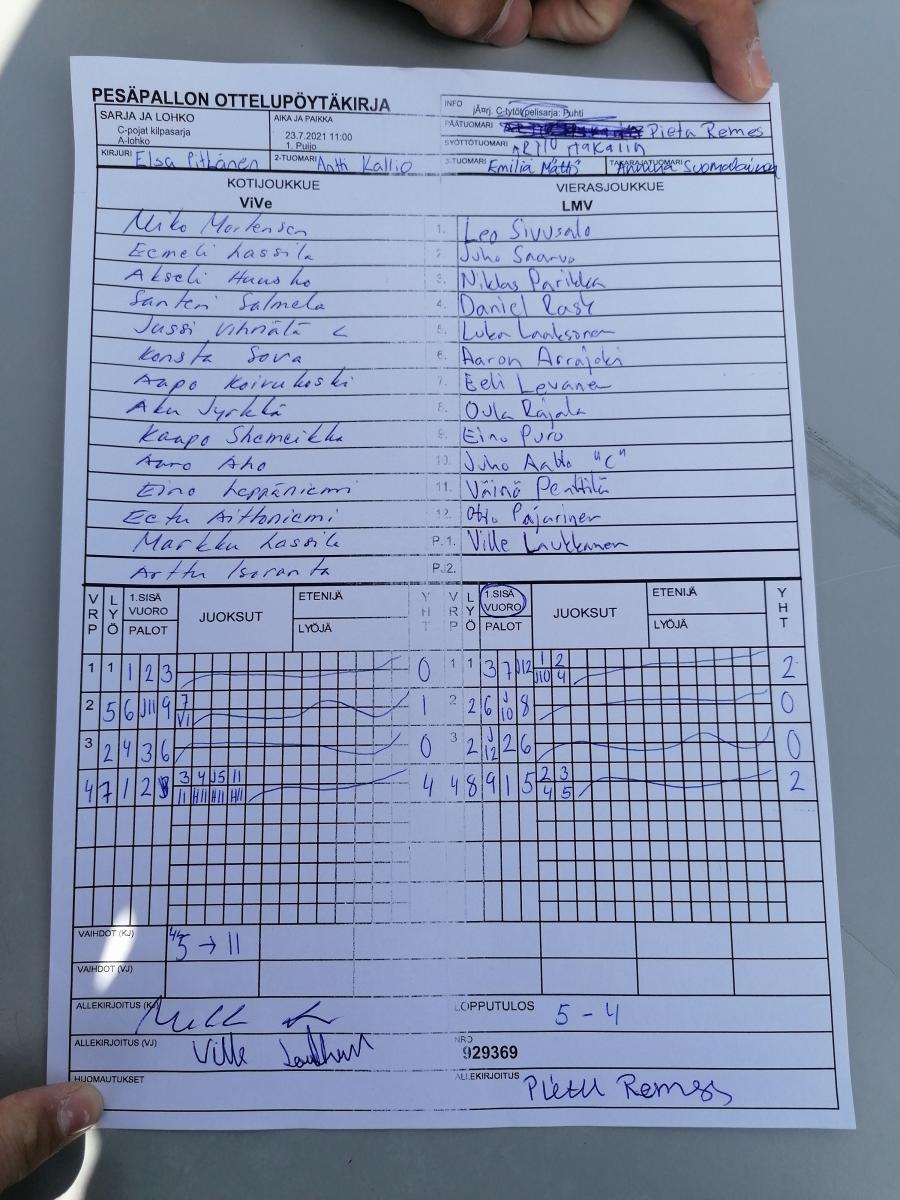 PESÄPALLON OTTELUPÖYTÄKIRJA
SARJA JA LOHKO
C-pojat kilpasarja
A-lohko
AIKA JA PAIKKA
23.7.2021 11:00
1. Puijo
INFO
C-tytöt pelisarja: Puhti
PÄÄTUOMARI Pieta Remes
SYÖTTÖTUOMARI
KIRJURI Elsa Pitkänen
2-TUOMARI Antti Kallio
3-TUOMARI Emilia Mättö
TAKARAJATUOMARI Suomalainen
KOTIJOUKKUE
ViVe
VIERASJOUKKUE
LMV
Miko Mortensen 1. Leo Sivusalo
Eemeli Lassila 2. Juho Saarvo
Akseli Huusko 3. Niklas Parikka
Santeri Salmela 4. Daniel Rasy
Jussi Vihriälä C 5. Luka Laaksonen
Konsta Sova 6. Aaron Arrajoki
Aapo Koivukoski 7. Eeli Levanen
Aku Jyrkkä 8. Oula Rajala
Kaapo Shemeikka 9. Eino Puro
Aaro Aho 10. Juho Aalto "C"
Eino Leppäniemi 11. Väinö Penttilä
Eetu Aittoniemi 12. Otto Pajarinen
Markku Lassila P.1. Ville Laukkanen
Arttu Isoranta PJ2.
VRP LYÖ 1.SISÄ VUORO PALOT JUOKSUT ETENIJÄ LYÖJÄ YHT VRP LYÖ 1.SISÄ VUORO PALOT JUOKSUT ETENIJÄ LYÖJÄ YHT
1 1 1 2 3 0 1 1 3 7 J12 1 2 J10 4 2
2 5 6 J11 9 7 V1 1 2 2 6 J10 8 0
3 2 4 3 6 0 3 2 J12 2 6 0
4 7 1 2 3 4 J5 11 11 H11 H11 H11 4 4 8 9 1 5 2 3 4 5 2
VAIHDOT (KJ) 5 → 11
VAIHDOT (VJ)
ALLEKIRJOITUS (KJ)
LOPPUTULOS 5 - 4
ALLEKIRJOITUS (VJ) Ville
NRO
929369
HUOMAUTUKSET
ALLEKIRJOITUS Pietu Remes